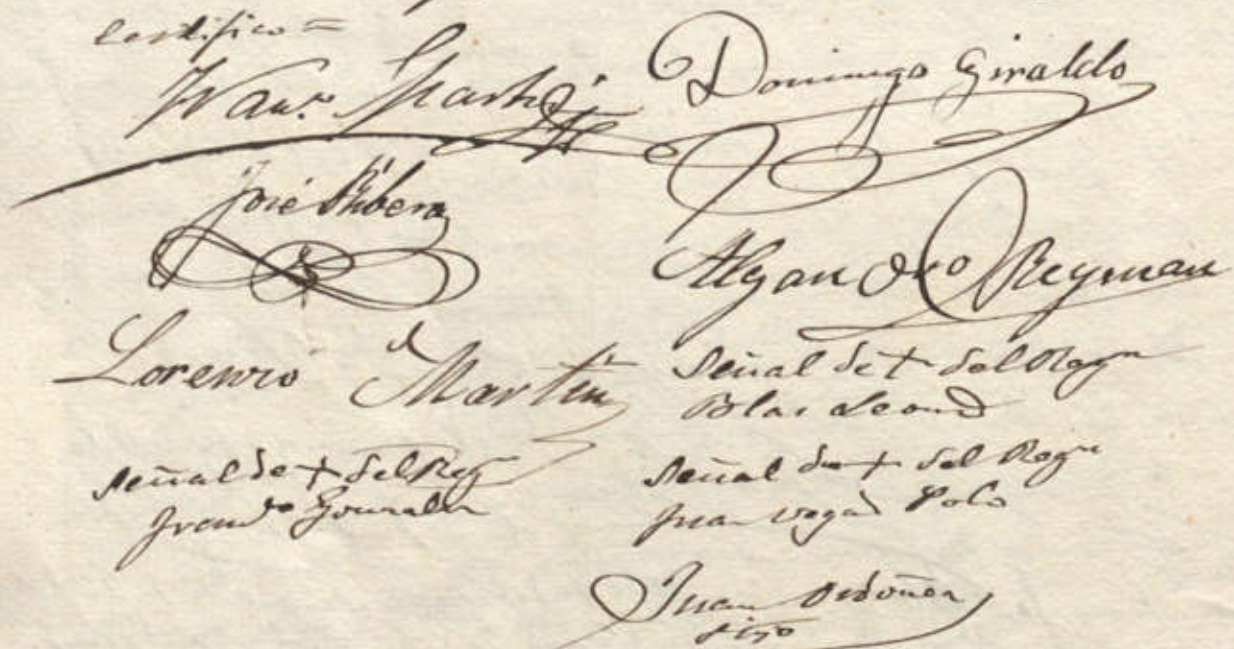 certifico =
Fran.co Martin Domingo Giraldo
José Ribera
Alejandro Reyman
Lorenzo Martin
Señal de + del Reg.r
Blas Leon
Señal de + del Reg.r
Fran.co Gonzalez
Señal de + del Reg.r
Juan Vega Polo
Juan Ordoñez